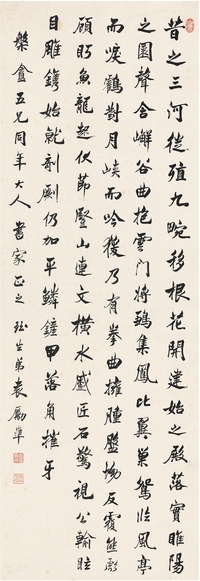 昔之三河徙殖九畹移根花開建始之殿落實睢陽
之園聲含嶰谷曲抱雲門將鵷集鳳比翼巢鴛臨風亭
而唳鶴對月峽而吟猨乃有拳曲擁腫盤坳反覆熊彪
顧盼魚龍起伏節豎山連文橫水蹙匠石驚視公輸眩
目雕鐫始就剞劂仍加平鱗鏟甲落角摧牙
槃盦五兄同年大人書家正之 珏生弟袁勵準